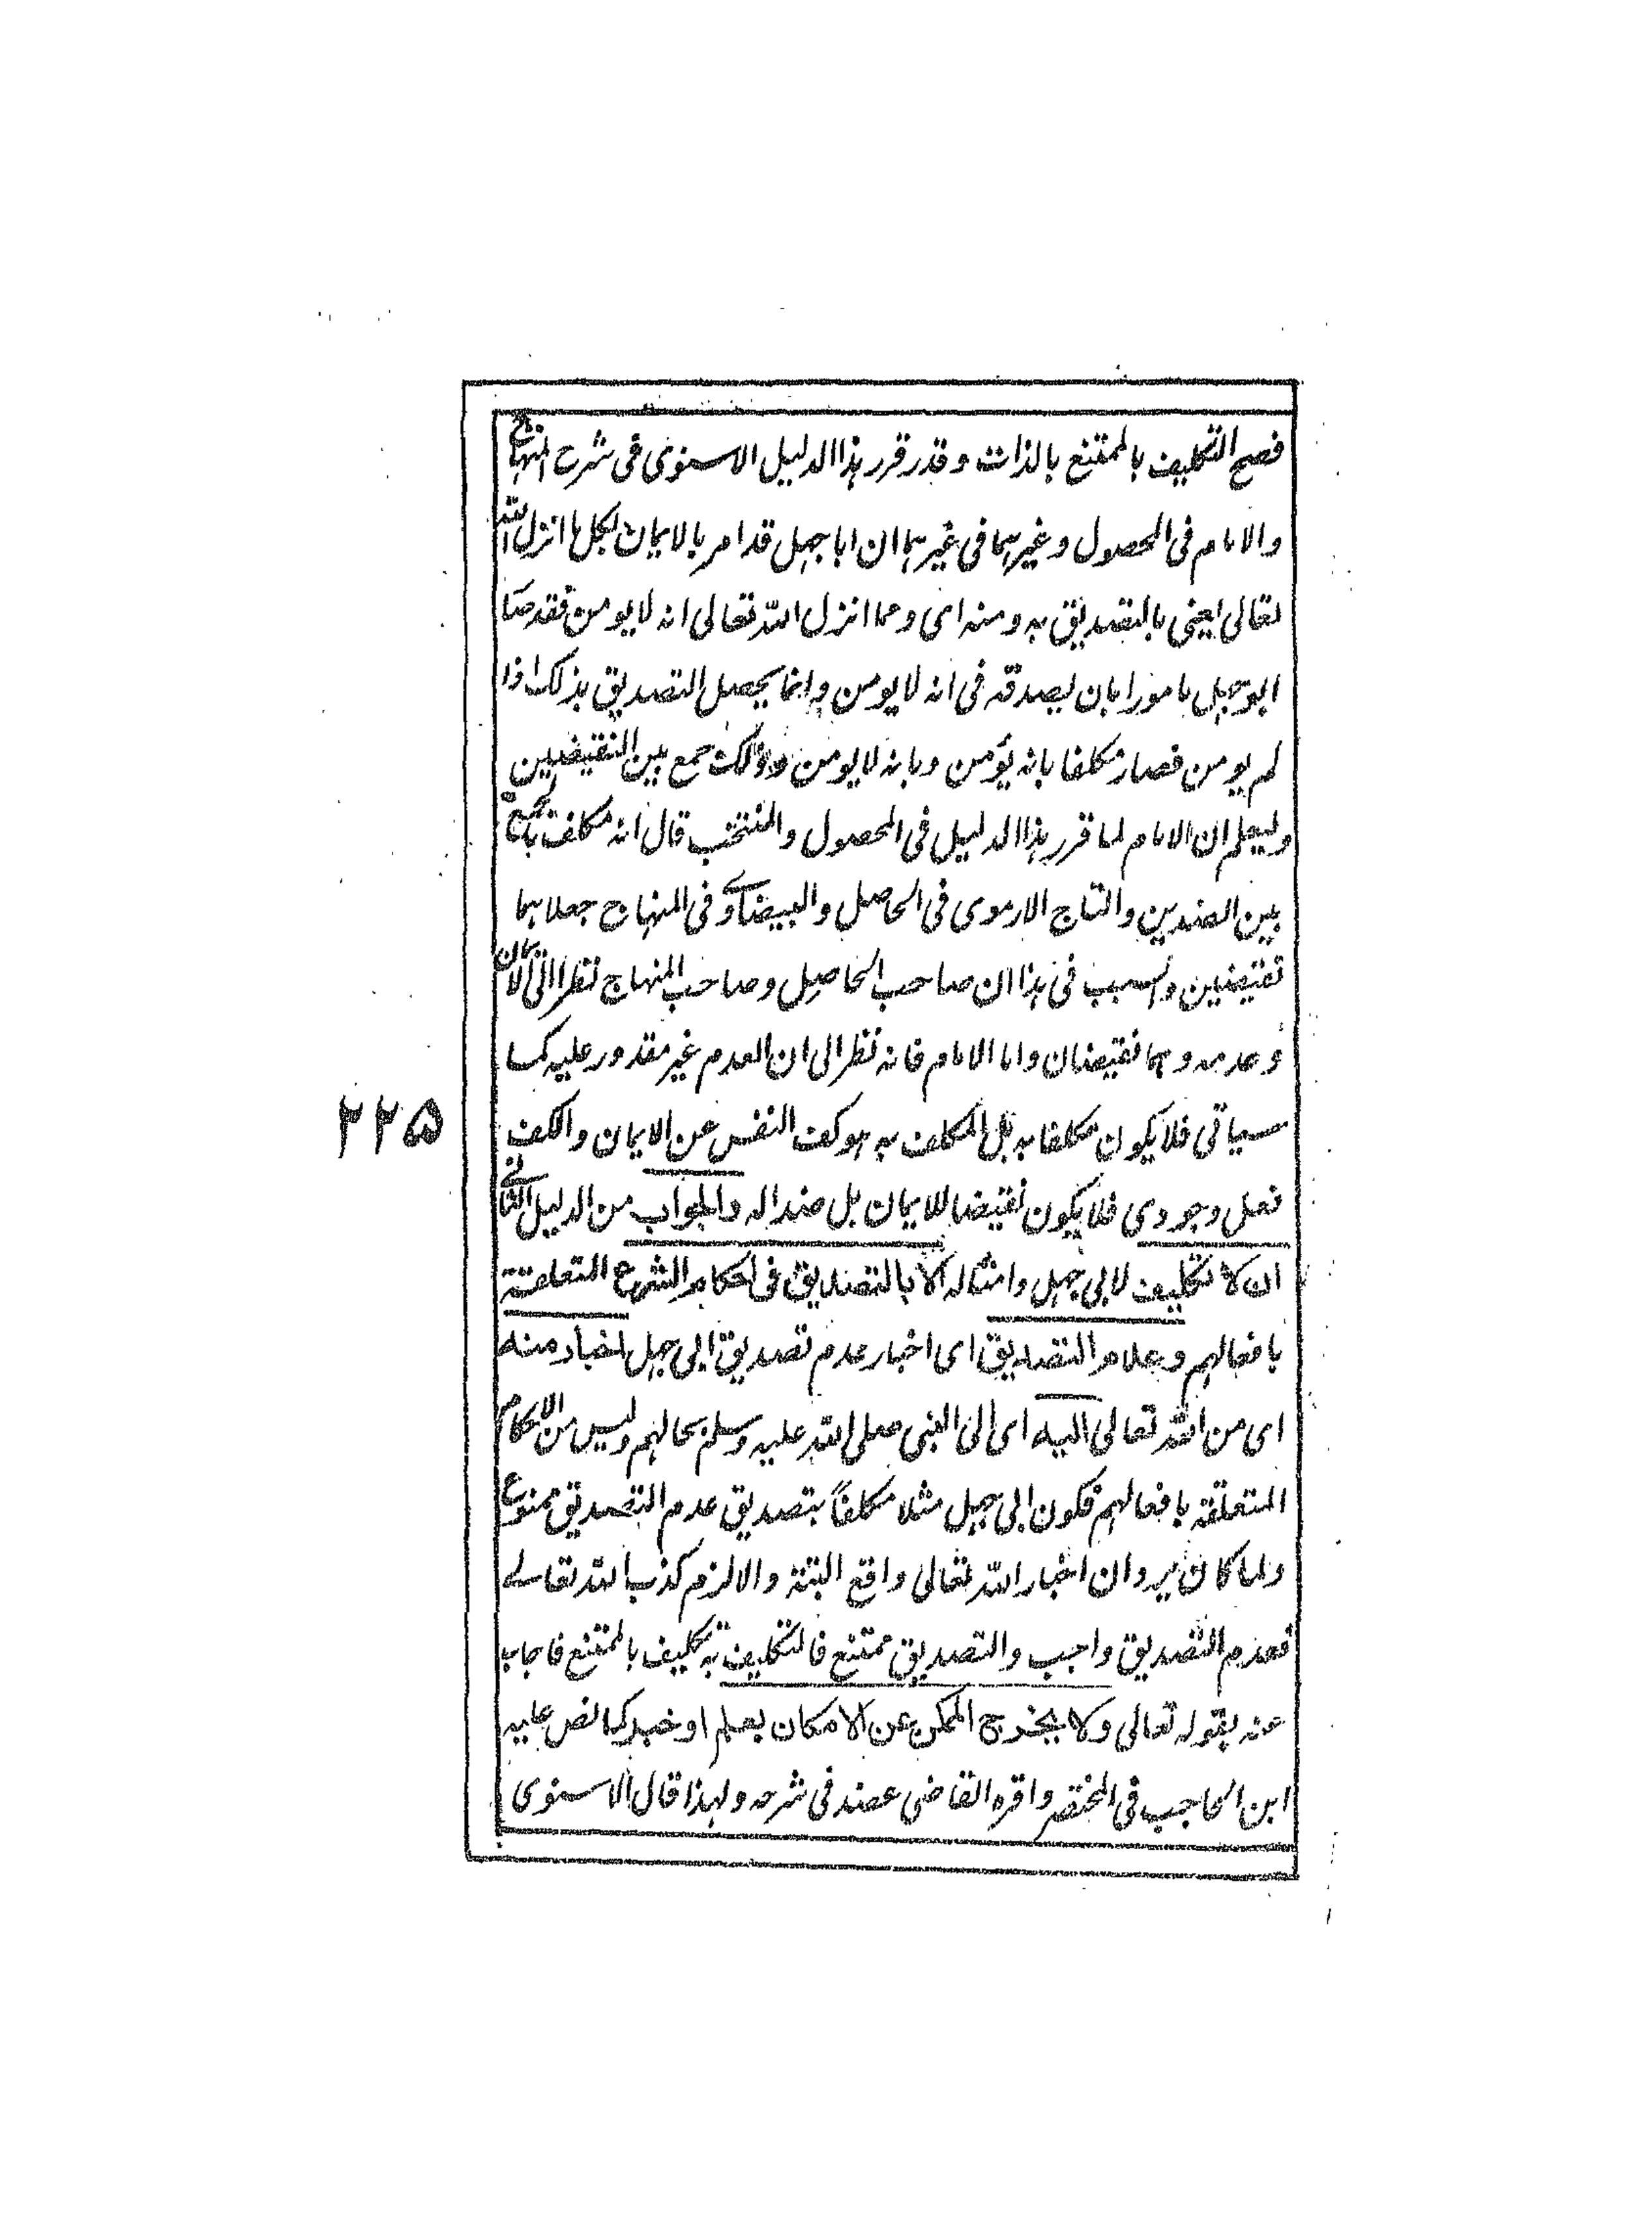 فصح التكليف بالممتنع بالذات وقدر قرر هذا الدليل الاسنوى فى شرح المنهاج
والامام فى المحصول وغيرهما فى غيرهما ان ابا جهل قد امر بالايمان بكل ما انزل الله
تعالى يعنى بالتصديق به ومنه اى ومما انزل الله تعالى انه لا يومن فقد صا
ابو جهل مامورا بان يصدقه فى انه لا يومن وانما يحصل التصديق بذلك اذا
لم يومن فصار مكلفا بانه يؤمن وبانه لا يومن وذلك جمع بين النقيضين
وليعلم ان الامام لما قرر هذا الدليل فى المحصول والمنتخب قال انه مكلف بالجمع
بين الضدين والتاج الارموى فى الحاصل والبيضاوى فى المنهاج جعلاهما
نقيضين والسبب فى هذا ان صاحب الحاصل وصاحب المنهاج نظرا الى الايمان
وعدمه وهما نقيضان واما الامام فانه نظر الى ان العدم غير مقدور عليه كما
سياتى فلا يكون مكلفا به بل المكلف به هو كف النفس عن الايمان والكف
فعل وجودى فلا يكون نقيضا للايمان بل ضدا له والجواب من الدليل الثانى
ان لا تكليف لابى جهل وامثاله الا بالتصديق فى احكام الشرع المتعلقة
بافعالهم وعدم التصديق اى اخبار عدم تصديق ابى جهل اخبار منه
اى من الله تعالى اليه اى الى النبى صلى الله عليه وسلم بحالهم وليس من الاحكام
المتعلقة بافعالهم فكون ابى جهل مثلا مكلفاً بتصديق عدم التصديق ممنوع
ولما كان يرد ان اخبار الله تعالى واقع البتة والا لزم كذب الله تعالى
فعدم التصديق واجب والتصديق ممتنع فالتكليف به تكليف بالممتنع فاجاب
عنه بقوله تعالى ولا يخرج الممكن عن الامكان بعلم او خبر كما نص عليه
ابن الحاجب فى المختصر واقره القاضى عضد فى شرحه ولهذا قال الاسنوى
٢٢٥